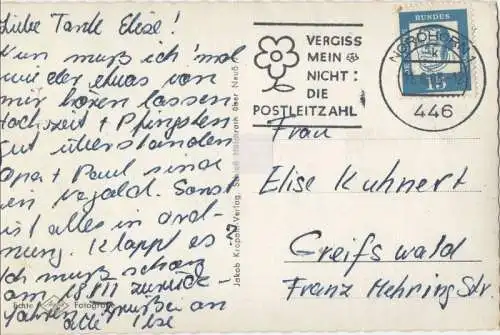 Liebe Tante Elise!
Nun muß ich 'mal
wieder etwas von
mir hören lassen.
Hochzeit + Pfingsten
gut überstanden
Opa + Paul sind
in Sonst
ist alles in Ord-
nung. Klappt es?
Ich muß schon
am 18. VII zurück-
fahren. Grüße an
alle! Ilse
VERGISS
MEIN
NICHT:
DIE
POSTLEITZAHL
DEUTSCHE
BUNDES
15
NORDHORN 1
446
Jakob Krapohl-Verlag, Schloß über Neuß
Echte Fotogra
Frau
Elise Kuhnert
Greifswald
Franz Mehring Str.